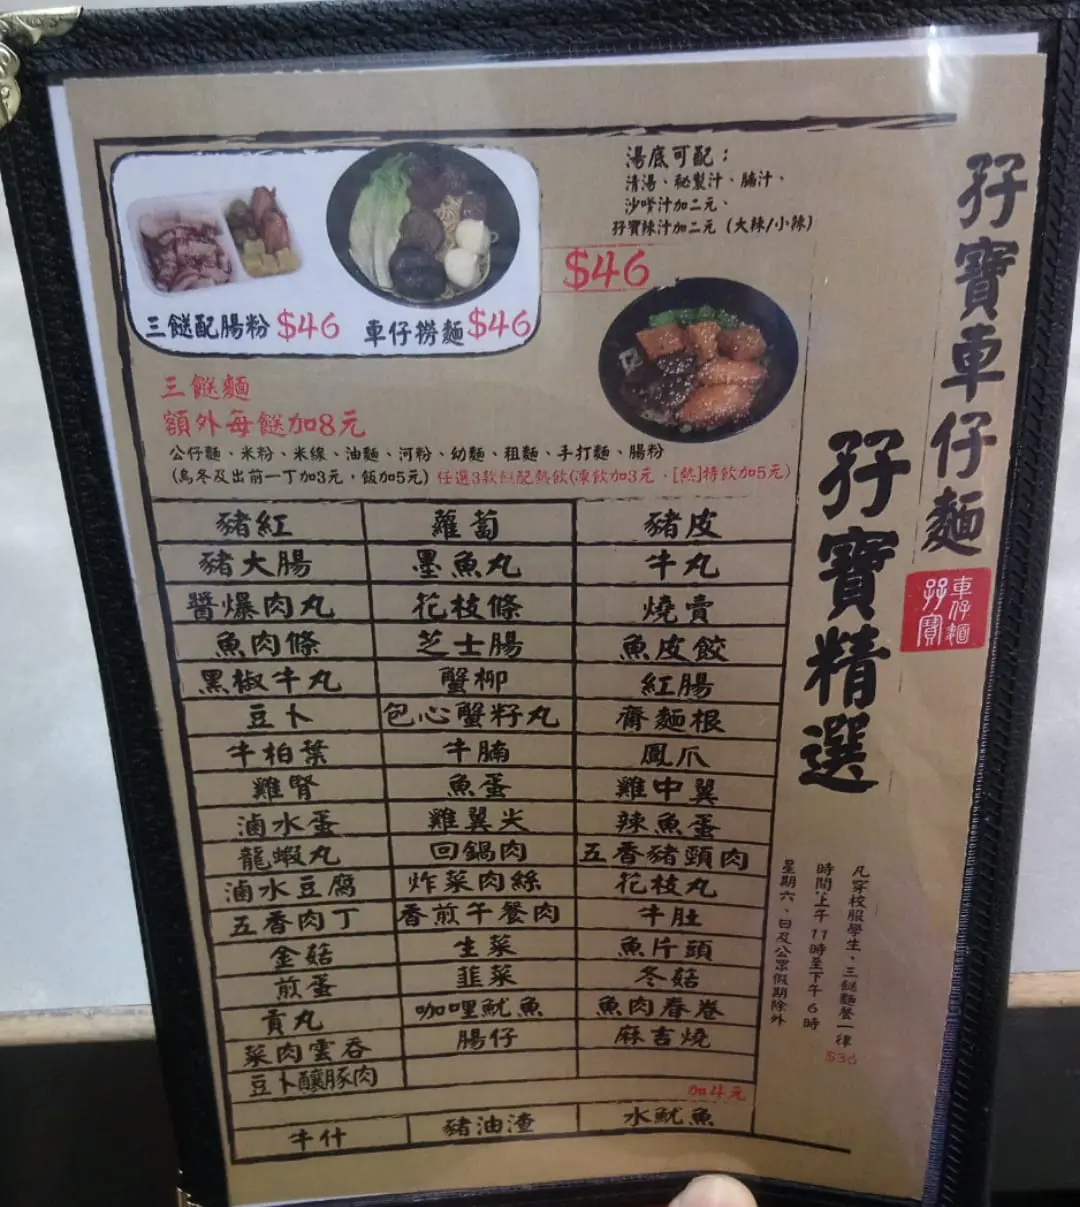 孖寶車仔麵
孖寶精選
車仔麵
孖寶
湯底可配：
清湯、秘製汁、腩汁、
沙嗲汁加二元、
孖寶辣汁加二元 (大辣/小辣)
$46
三餸配腸粉 $46
車仔撈麵 $46
三餸麵
額外每餸加8元
公仔麵、米粉、米線、油麵、河粉、幼麵、粗麵、手打麵、腸粉
(烏冬及出前一丁加3元，飯加5元) 任選3款餸配熱飲(凍飲加3元、[熱]特飲加5元)
豬紅 蘿蔔 豬皮
豬大腸 墨魚丸 牛丸
醬爆肉丸 花枝條 燒賣
魚肉條 芝士腸 魚皮餃
黑椒牛丸 蟹柳 紅腸
豆卜 包心蟹籽丸 齋麵根
牛柏葉 牛腩 鳳爪
雞腎 魚蛋 雞中翼
滷水蛋 雞翼尖 辣魚蛋
龍蝦丸 回鍋肉 五香豬頸肉
滷水豆腐 炸菜肉絲 花枝丸
五香肉丁 香煎午餐肉 牛肚
金菇 生菜 魚片頭
煎蛋 韮菜 冬菇
貢丸 咖哩魷魚 魚肉春卷
菜肉雲吞 腸仔 麻吉燒
豆卜釀豚肉
加4元
牛什 豬油渣 水魷魚
凡穿校服學生、三餸麵餐一律
$36
時間:上午11時至下午6時
星期六、日及公眾假期除外